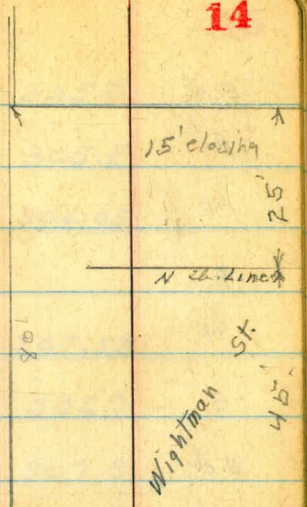 14
15' closing
25'
N ch. Line
80'
Wightman St.
45'